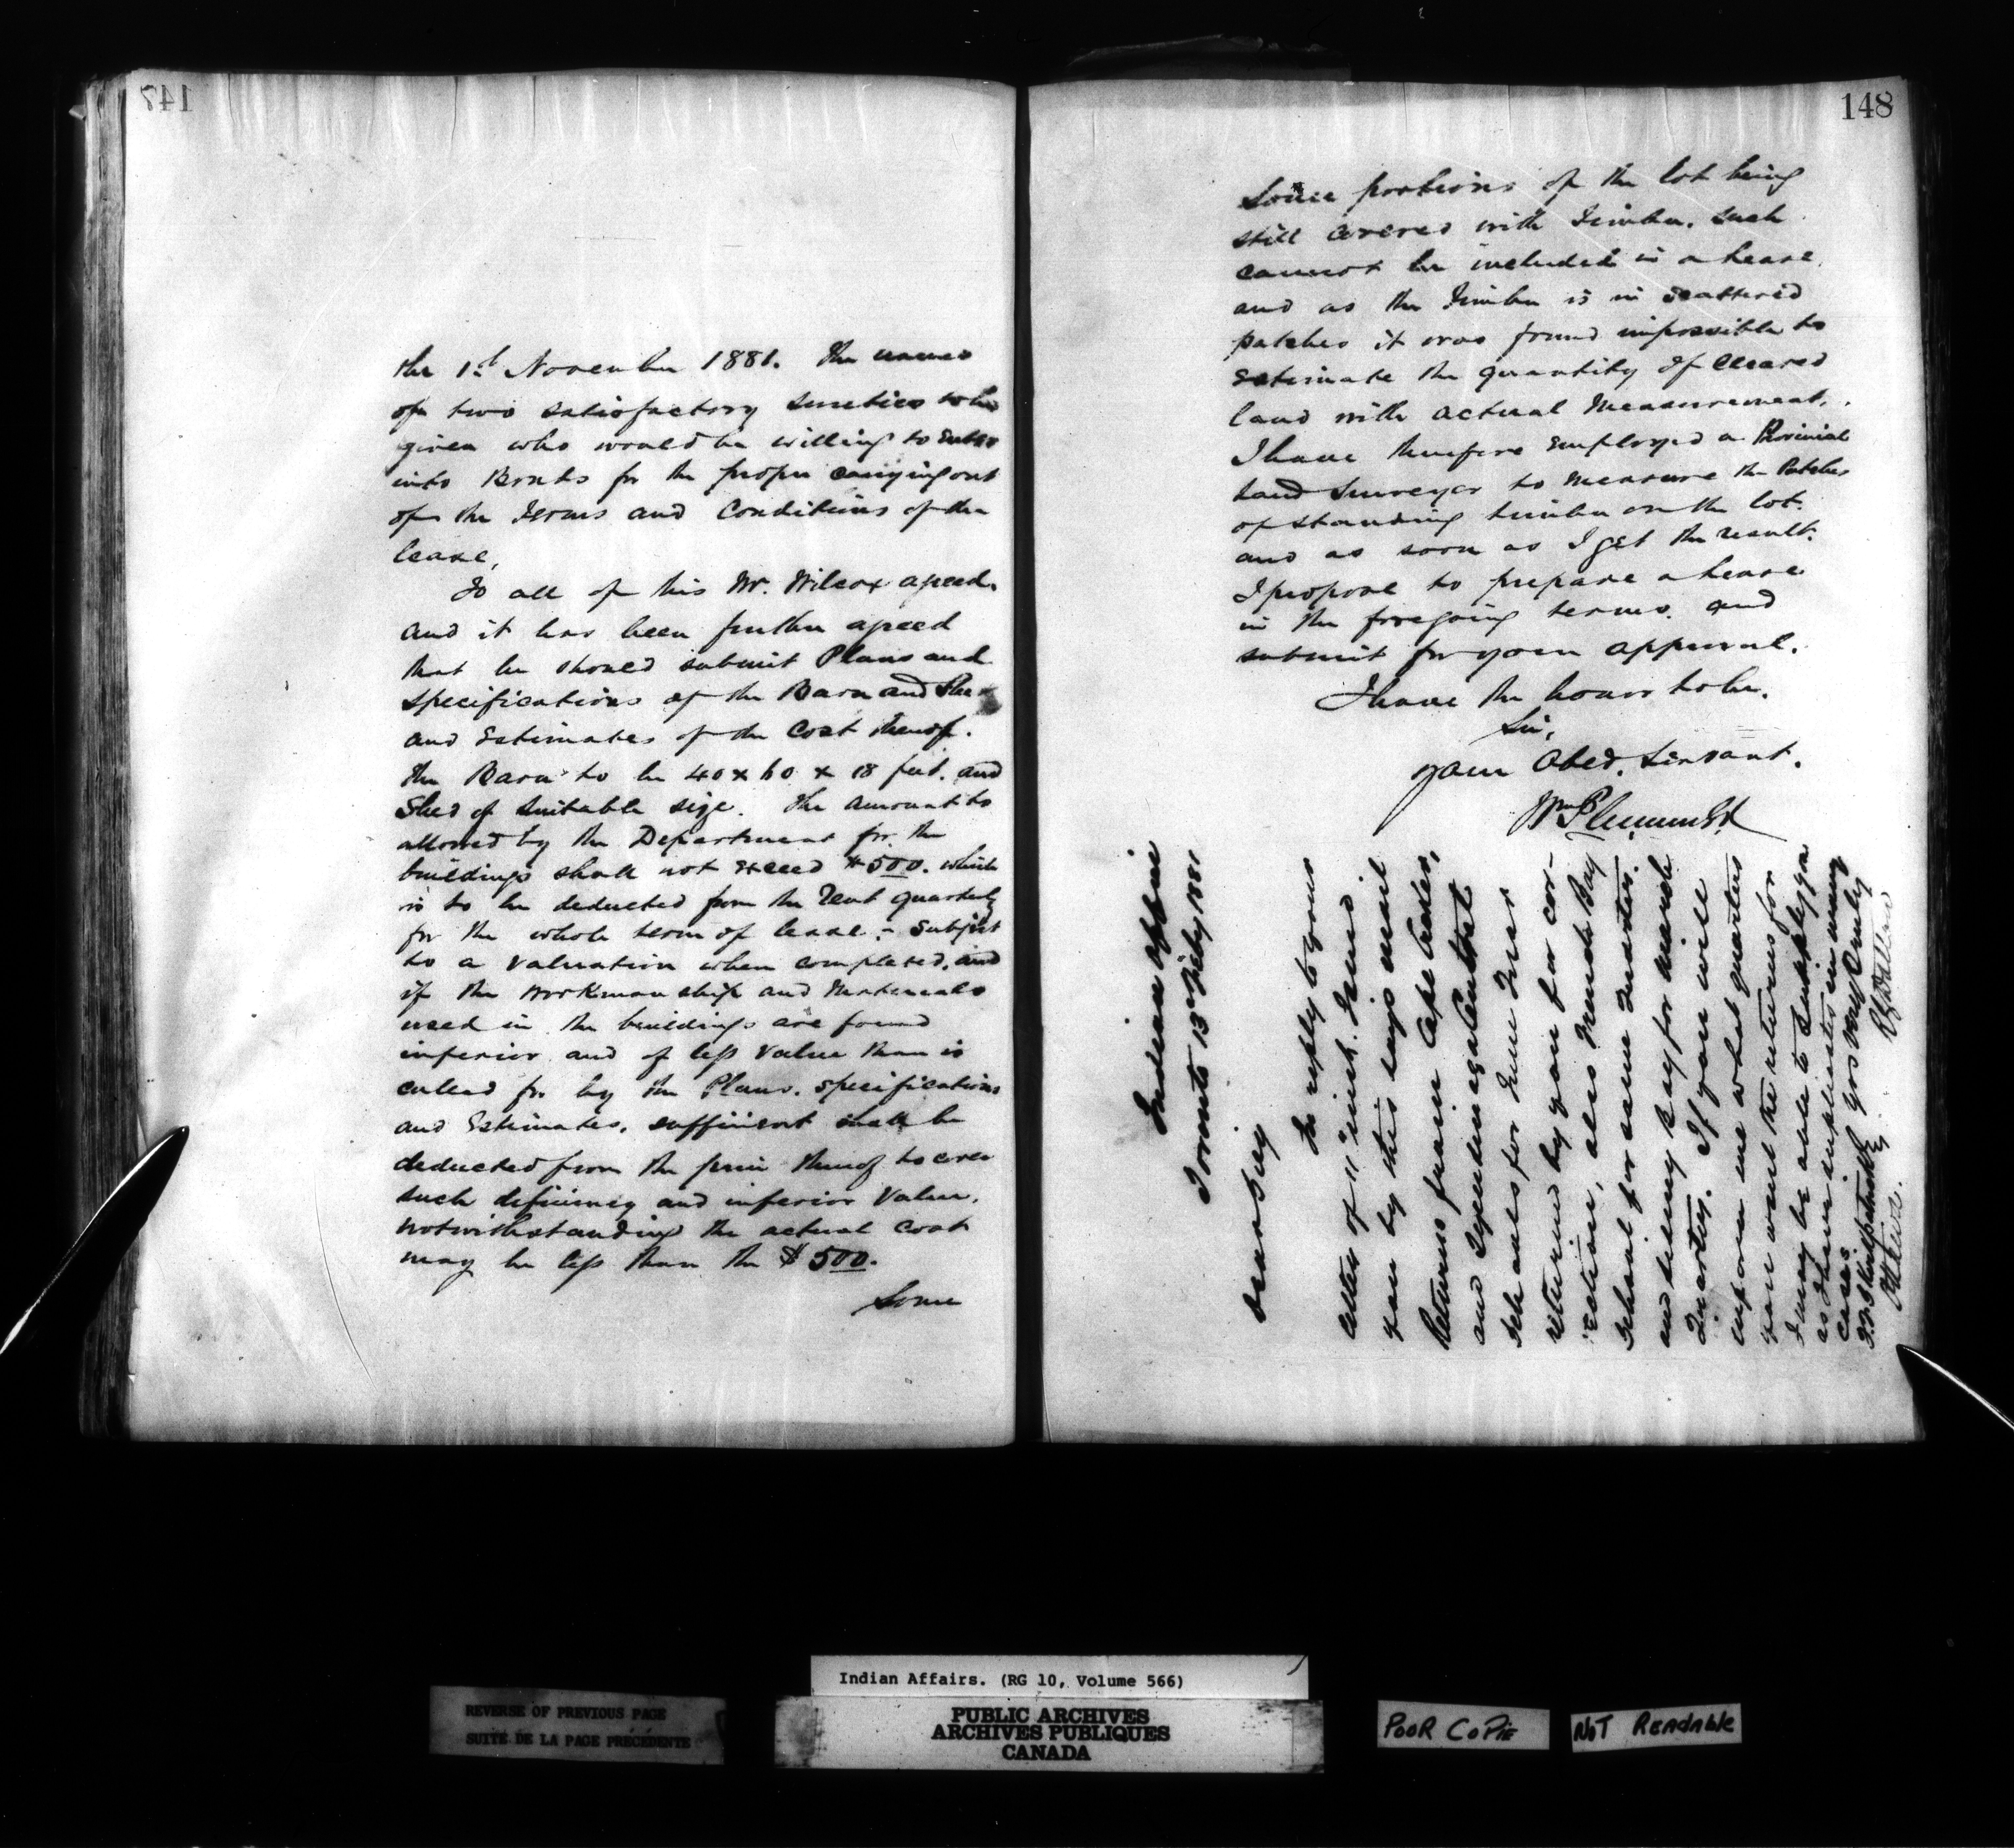 147
the 1st November 1881. The names
of two satisfactory sureties to be
given who would be willing to Enter
into Bonds for the proper carrying out
of the Terms and Conditions of the
lease,
To all of this Mr. Wilcox agreed.
and it has been further agreed
that he should submit Plans and
specifications of the Barn and Shed
and Estimates of the Cost thereof.
the Barn to be 40 x 60 x 18 feet. and
Shed of Suitable size. The amount to
allowed by the Department for the
buildings shall not exceed $500. which
is to be deducted from the Rent quarterly
for the whole term of lease - subject
to a valuation when completed, and
if the workmanship and Materials
used in the buildings are found
inferior and of less Value than is
called for by the Plans. specifications
and Estimates, sufficient shall be
deducted from the price thereof to cover
such deficiency and inferior Value.
notwithstanding the actual Cost
may be less than the $500.
Some
148
Some portions of the lot being
still covered with Timber. such
cannot be included in a lease.
and as the Timber is in scattered
patches it was found impossible to
Estimate the quantity of Cleared
land with actual Measurement.
I have therefore Employed a Provincial
Land Surveyor to Measure the Patches
of standing timber on the lot.
and as soon as I get the result.
I propose to prepare a Lease
in the foregoing terms. and
submit for your approval.
I have the honor to be.
Sir,
your Obed. Servant.
Wm Plummer
Indian Office
Toronto 13 Feby 1881
Dear Sir
In reply to yours
letter of 11" inst. I send
you by this days mail
Returns from Cape Croker,
and
schools for June
returned by you for cor-
rection, also French Bay
School for same Quarter.
and Sidney Bay for March
Quarter. If you will
inform me what quarters
you want the returns for
I may be able to supply you
as I have duplicates in many
cases. Yrs very truly
Indian Affairs. (RG 10, Volume 566)
REVERSE OF PREVIOUS PAGE
SUITE DE LA PAGE PRÉCÉDENTE
PUBLIC ARCHIVES
ARCHIVES PUBLIQUES
CANADA
POOR COPIE
NOT READABLE